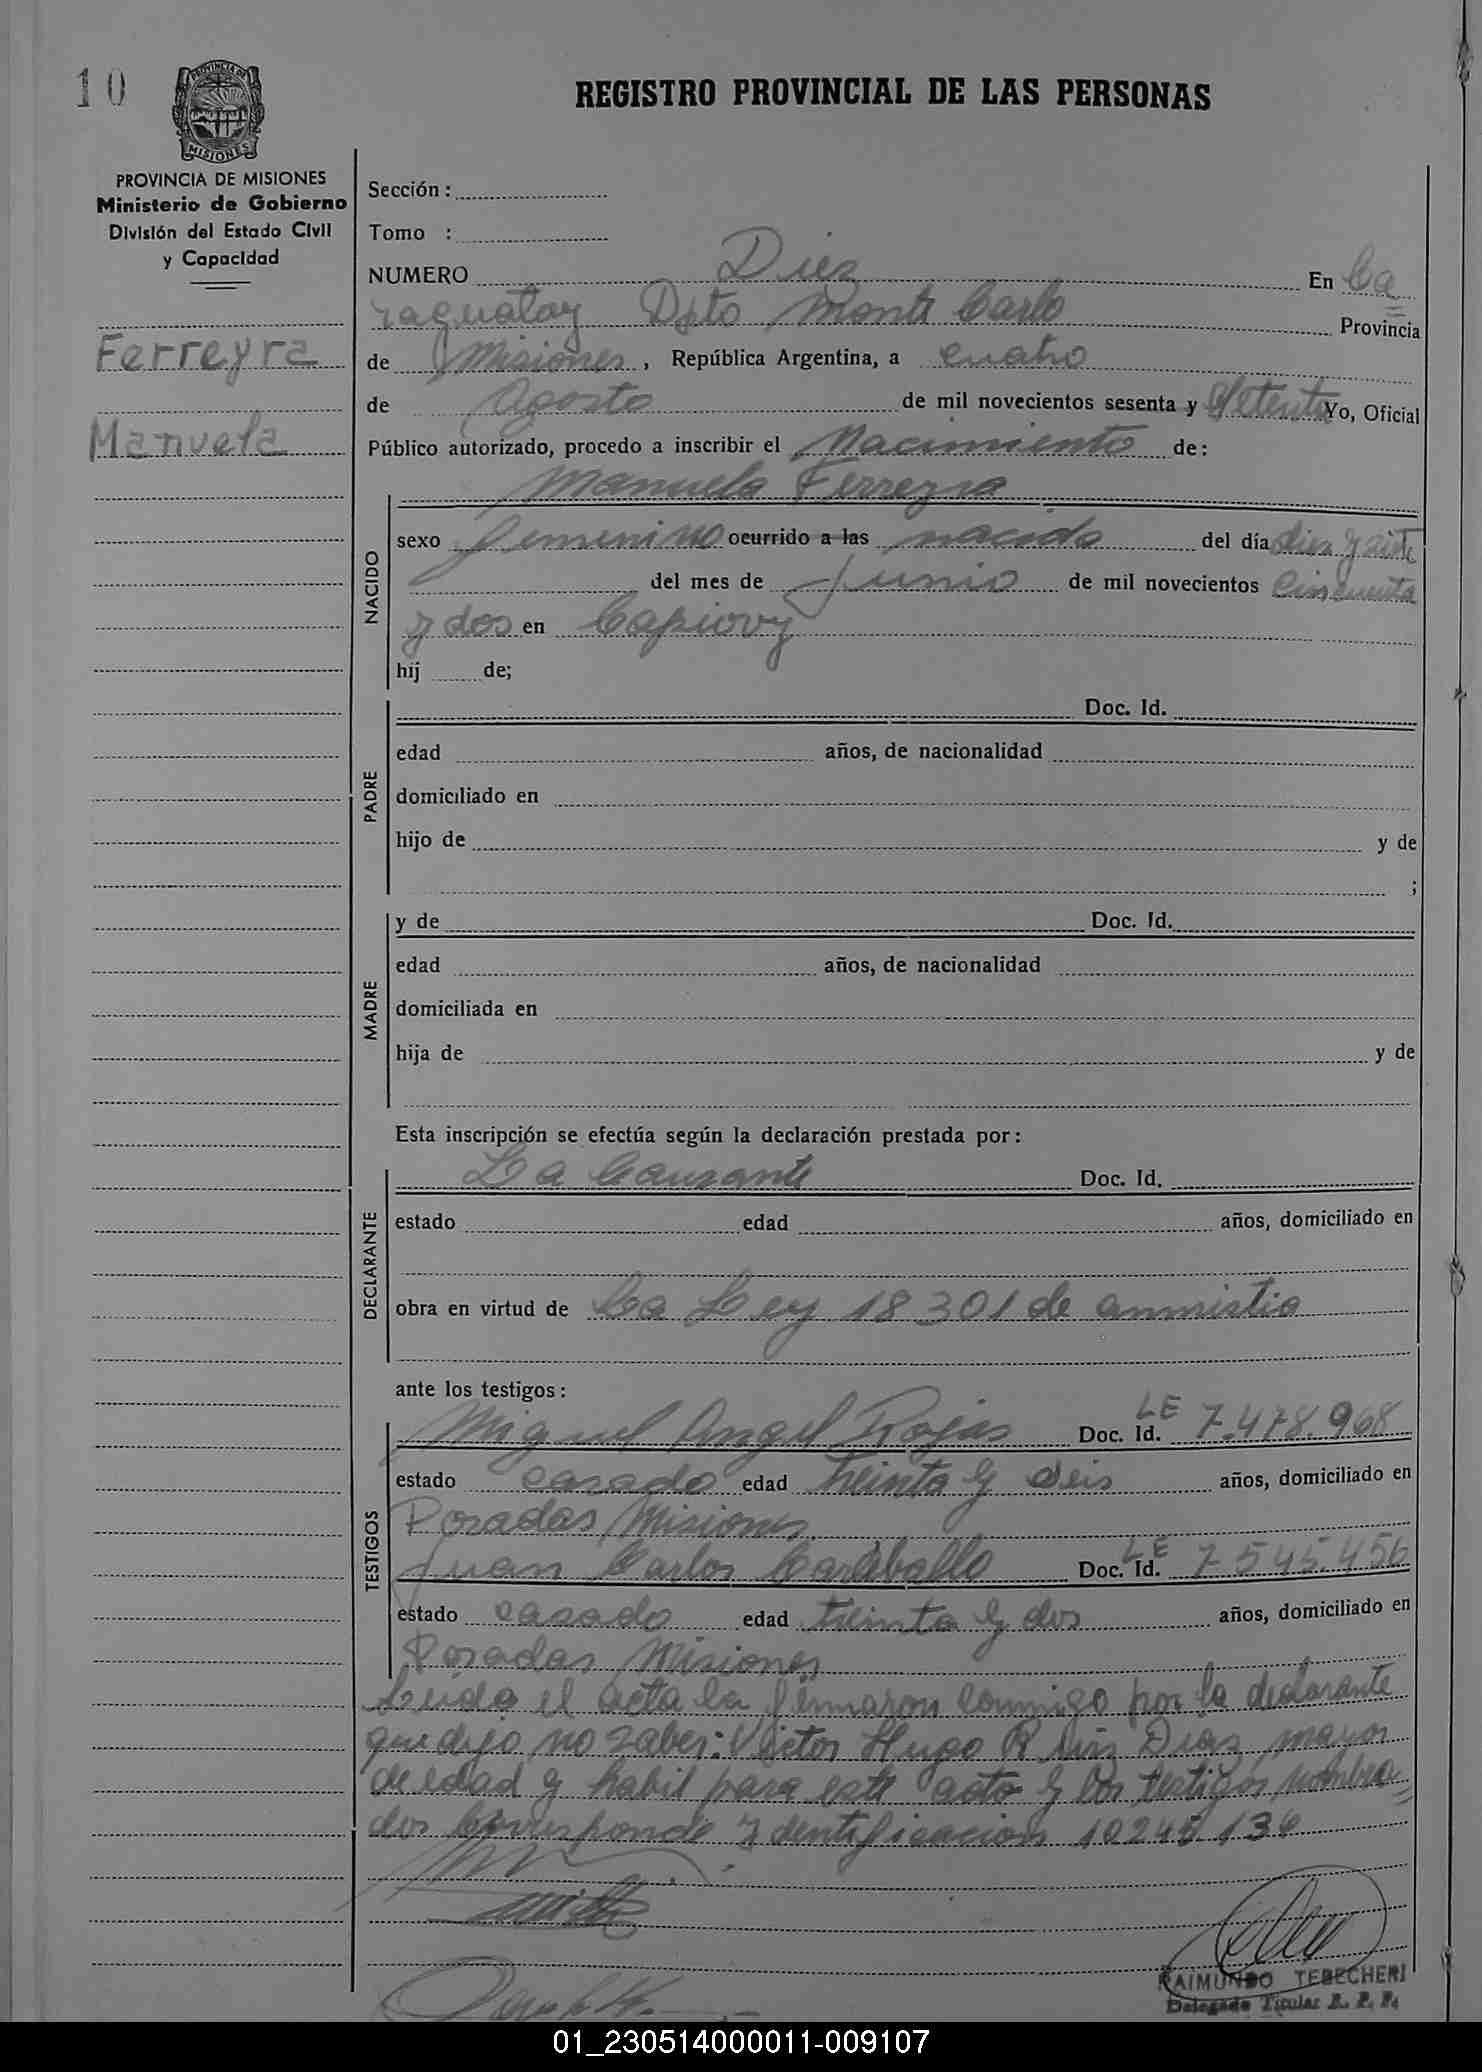 10
PROVINCIA DE
MISIONES
REGISTRO PROVINCIAL DE LAS PERSONAS
PROVINCIA DE MISIONES
Ministerio de Gobierno
División del Estado Civil
y Capacidad
Ferreyra
Manuela
Sección :
Tomo :
NUMERO Diez En Ca
raguatay Dpto Monte Carlo Provincia
de Misiones, República Argentina, a cuatro
de Agosto de mil novecientos sesenta y Setenta Yo, Oficial
Público autorizado, procedo a inscribir el Nacimiento de:
NACIDO
Manuela Ferreyra
sexo femenino ocurrido a las nacida del día diez y siete
del mes de Junio de mil novecientos Cincuenta
y dos en Capiovy
hij de;
PADRE
Doc. Id.
edad años, de nacionalidad
domiciliado en
hijo de y de
;
MADRE
y de Doc. Id.
edad años, de nacionalidad
domiciliada en
hija de y de
Esta inscripción se efectúa según la declaración prestada por:
DECLARANTE
La Causante Doc. Id.
estado edad años, domiciliado en
obra en virtud de La Ley 18301 de amnistia
ante los testigos:
TESTIGOS
Miguel Angel Rojas Doc. Id. LE 7.478.968
estado casado edad treinta y seis años, domiciliado en
Posadas Misiones
Juan Carlos Caraballo Doc. Id. LE 7.545.456
estado casado edad treinta y dos años, domiciliado en
Posadas Misiones
Leida el acta la firmaron conmigo por la declarante
que dijo no saber: Victor Hugo Ruiz Diaz, mayor
de edad y habil para este acto y los testigos nombra=
dos Corresponde Ydentificacion 10245.136
RAIMUNDO TEBECHERI
Delegado Titular R. P. P.
01_230514000011-009107